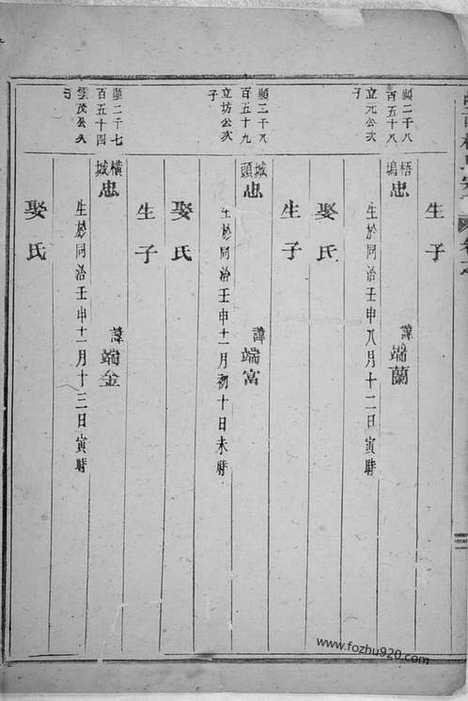 生子
顯二千八
百五十八
立元公次
子
梧塢
忠
諱端蘭
生於同治壬申八月十二日寅時
娶氏
生子
顯二千八
百五十九
立坊公次
子
城頭
忠
諱端富
生於同治壬申十一月初十日未時
娶氏
生子
顯二千七
百五十四
公次
子
橫城
忠
諱端金
生於同治壬申十一月十三日寅時
娶氏
www.fozhu920.com